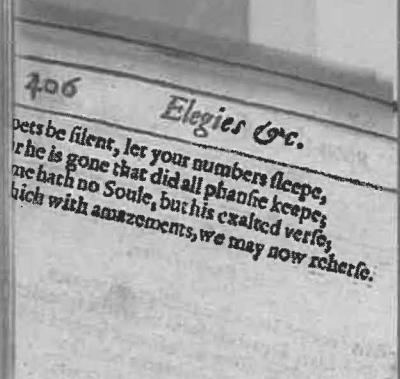 406 Elegies &c.
oets be silent, let your numbers sleepe,
r he is gone that did all phansie keepe;
me hath no Soule, but his exalted verse;
hich with amazements, we may now reherse.